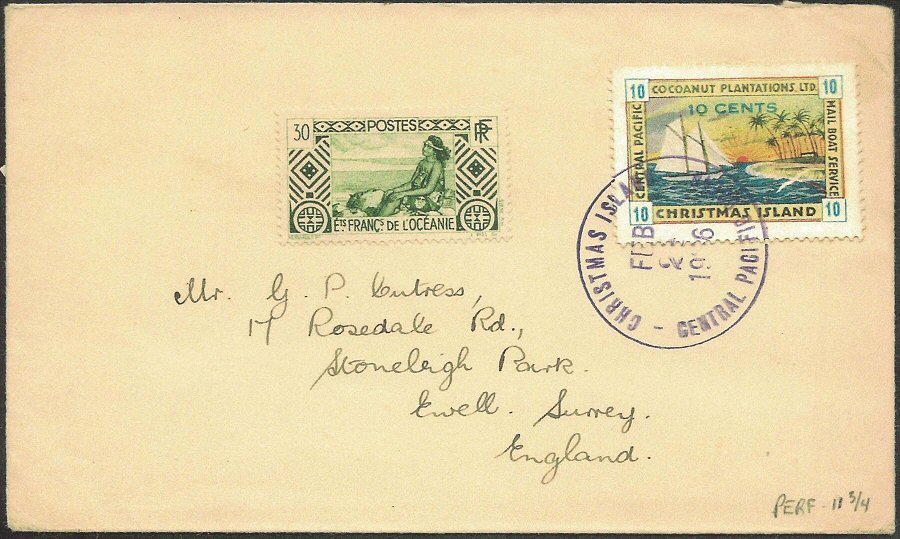 30 POSTES RF
Éts FRANÇs DE L'OCÉANIE
10 COCOANUT PLANTATIONS, LTD. 10
10 CENTS
CENTRAL PACIFIC
MAIL BOAT SERVICE
10 CHRISTMAS ISLAND 10
CHRISTMAS ISLA
FEB
CENTRAL PACIFIC
Mr. G. P. Cutress,
17 Rosedale Rd.,
Stoneleigh Park.
Ewell. Surrey.
England.
PERF - 11 3/4